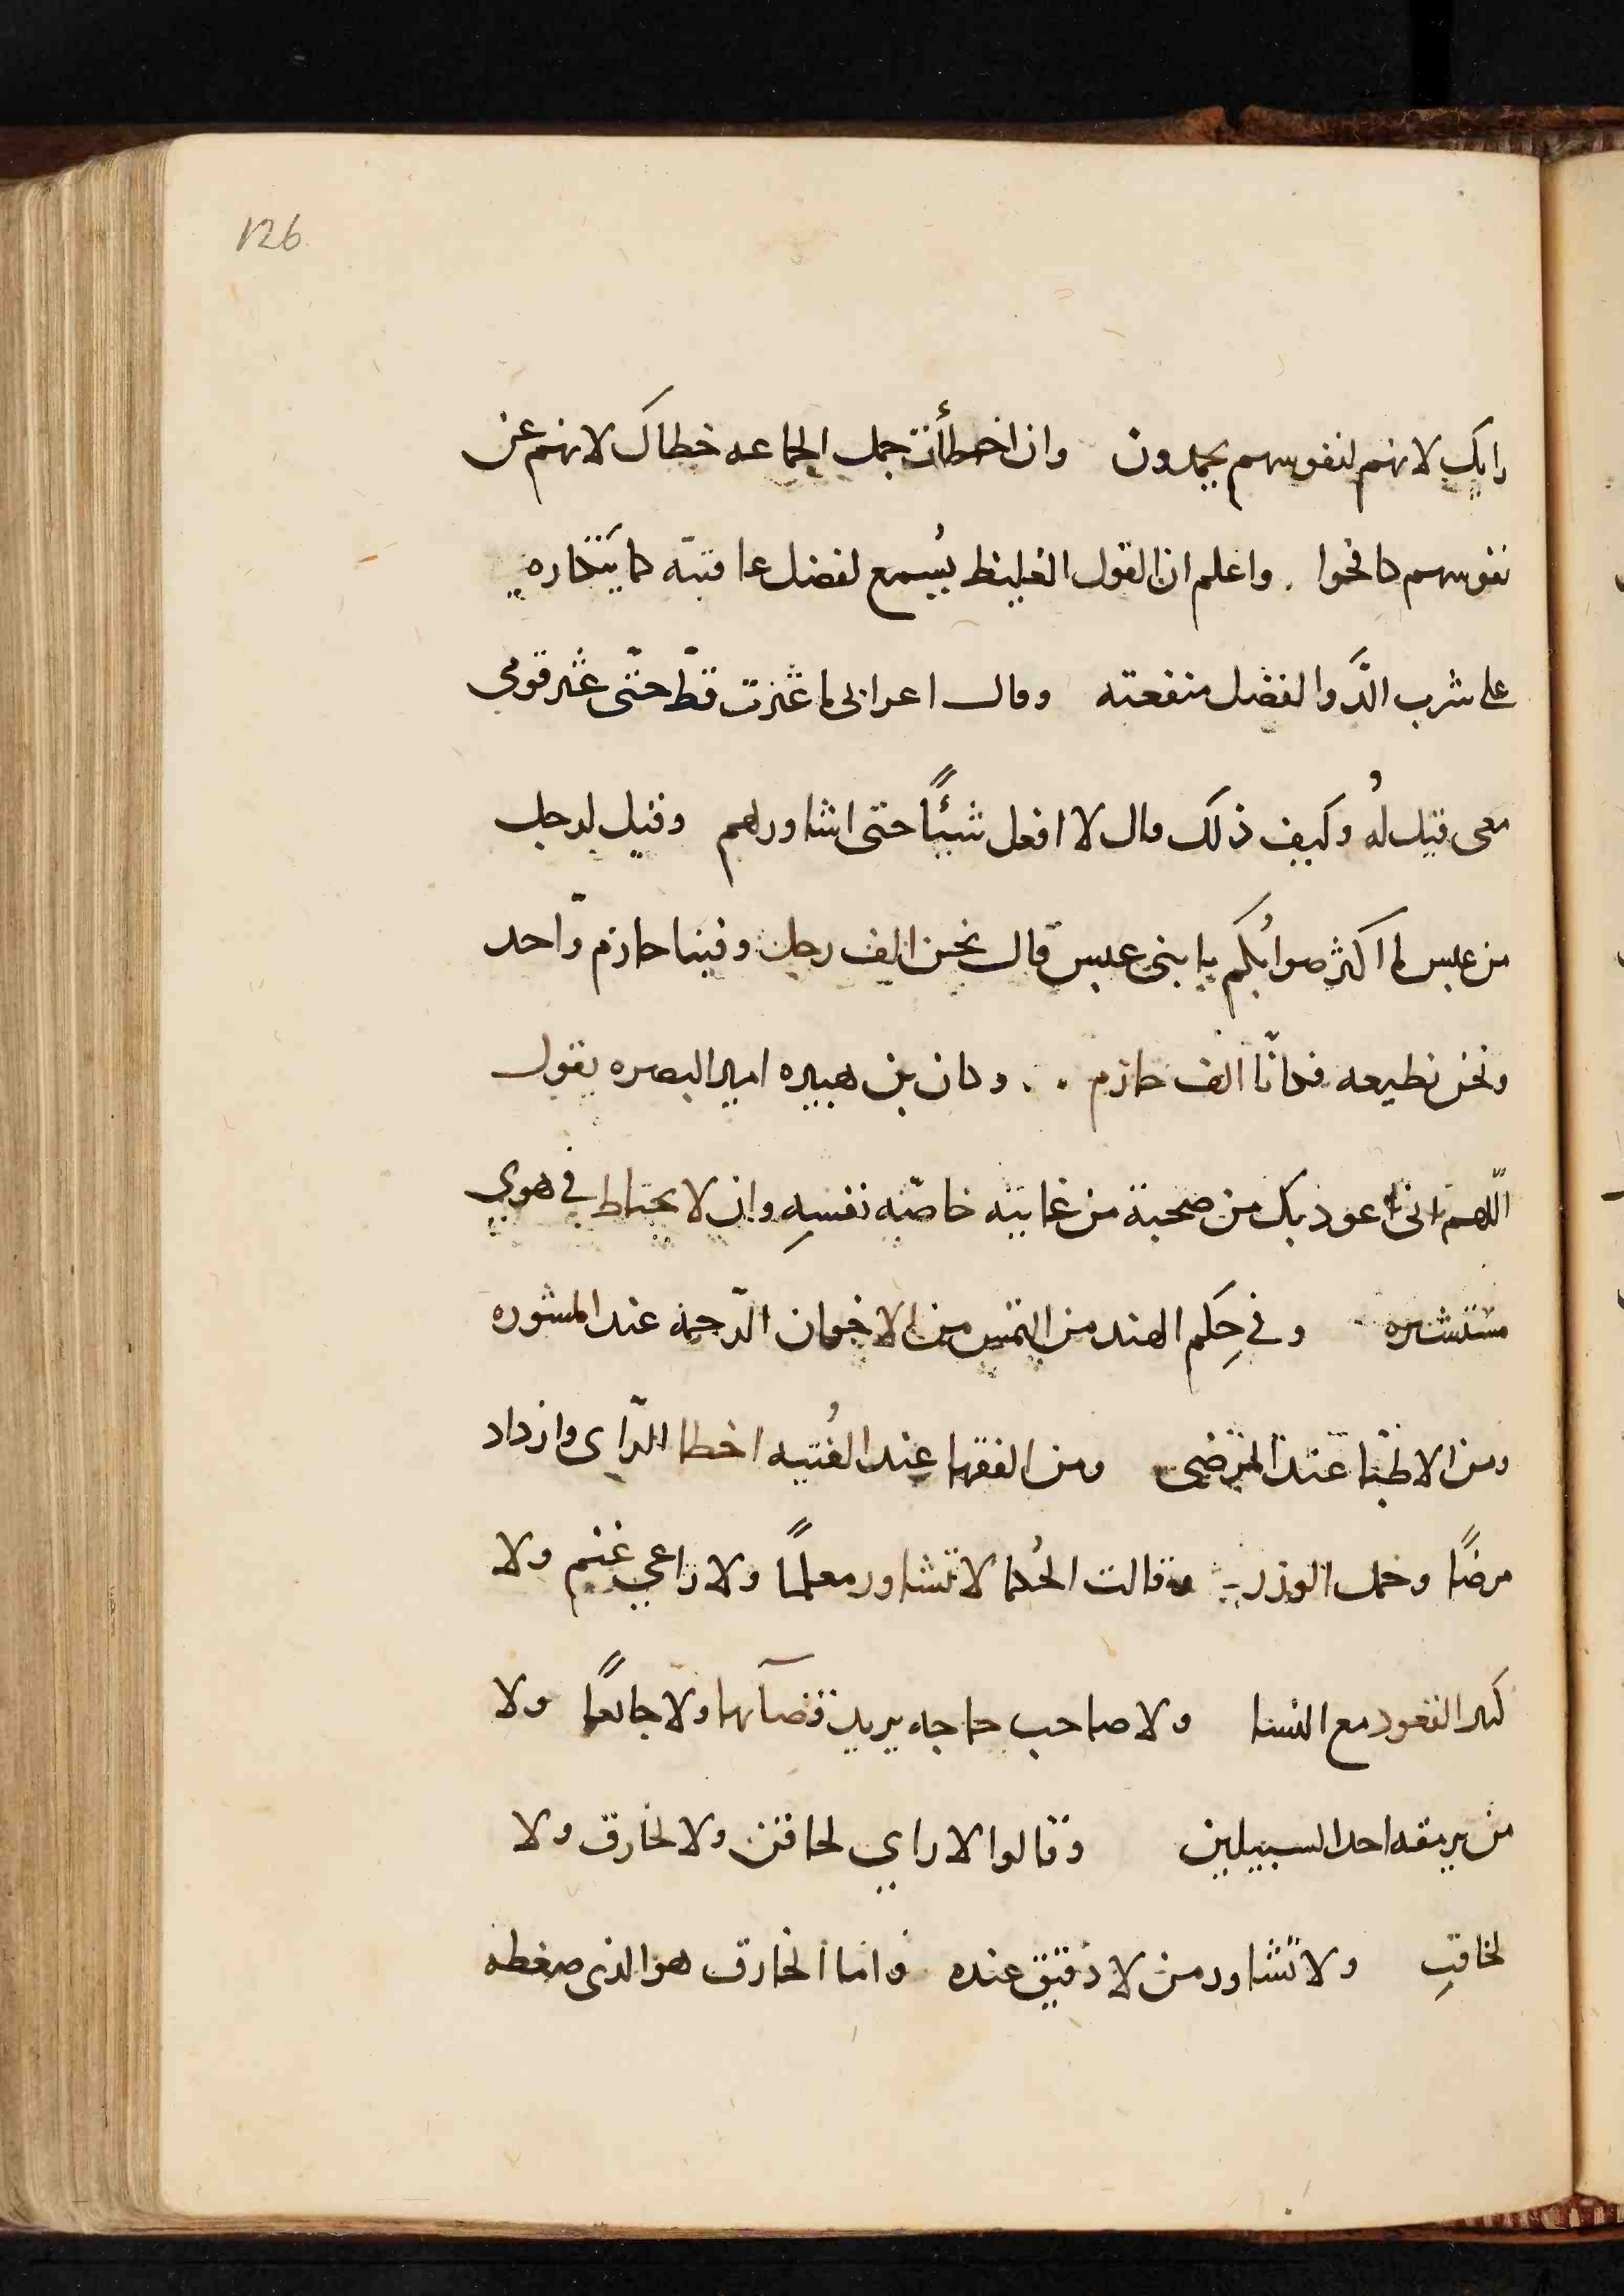 126
رايك لانهم لنفوسهم يحمدون وان اخطأت حمل الجماعه خطاك لانهم عن
نفوسهم كافحوا . واعلم ان القول الغليظ يُسمع لفضل عاقبته كما يتكاره
على شرب الدَّوا لفضل منفعته وقال اعرابى ما عثرت قطّ حتّى عثر قومى
معى قيل لهُ وكيف ذلك قال لا افعل شيئًا حتى اشاورهم وقيل لرجل
من عبس ما اكثر صوابُكم يا بنى عبس قال نحن الف رجل وفينا حازم وّاحد
ونحن نطيعه فكانّا الف حازم . . وكان بن هبيره امير البصره يقول
اللّهم انى اعوذ بك من صحبة من غايته خاصّه نفسهِ وان لا يحتاط في هوي
مستشيره وفي حِكم الهند من التمس من الاخوان الرّحمه عند المشوره
ومن الاطبّا عند المرضى ومن الفقها عند الفُتيه اخطا الرّاى وازداد
مرضًا وحمل الوزر وقالت الحُكما لا تشاور معلمًا ولا راعي غنم ولا
كثير القعود مع النسا ولا صاحب حاجه يريد قضآها ولا جائعًا ولا
من يرمقه احد السبيلين وقالوا لا راي لحاقن ولا لخارق ولا
لحاقبِ ولا تشاور من لا دقيق عنده واما الخارق هو الذى ضغطه